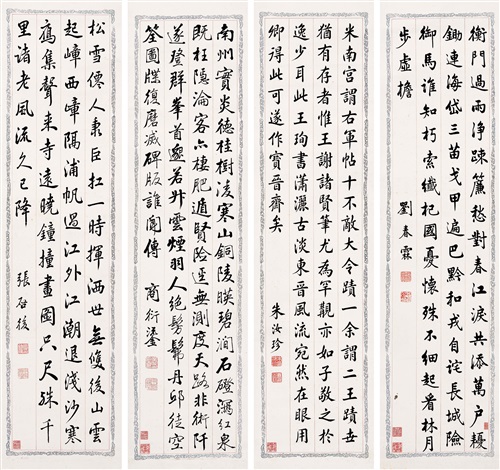 衡門過雨淨疎簾愁對江淚共萬户耰
鋤連海岱三苗戈甲遍巴黔和戎自詫長城險
御馬誰知朽索纖杞國憂懷殊不細起看林月
步虛檐
劉春霖
米南宮謂右軍帖十不敵大令蹟一余謂二王蹟世
猶有存者惟王謝諸賢筆尤為罕觀亦如子敬之於
逸少耳此王珣書瀟灑古淡東晉風流宛然在眼用
卿得此可遂作寶晉齋矣
朱汝珍
南州實炎德桂樹凌寒山銅陵暎碧澗石磴瀉紅泉
既枉隱淪客亦棲肥遁賢險逕無測度天路非術阡
遂登群峯首邈若升雲煙羽人絕髣髴丹邱徒空
筌圖牒復磨滅碑版誰聞傳
商衍鎏
松雪僊人巨扛一時揮洒世無雙後山雲
起嶂西嶂隔浦帆過江外江潮退淺沙寒
雁集聲来寺遠曉鐘撞畫圖只尺殊千
里諸老風流久已降
張啟後